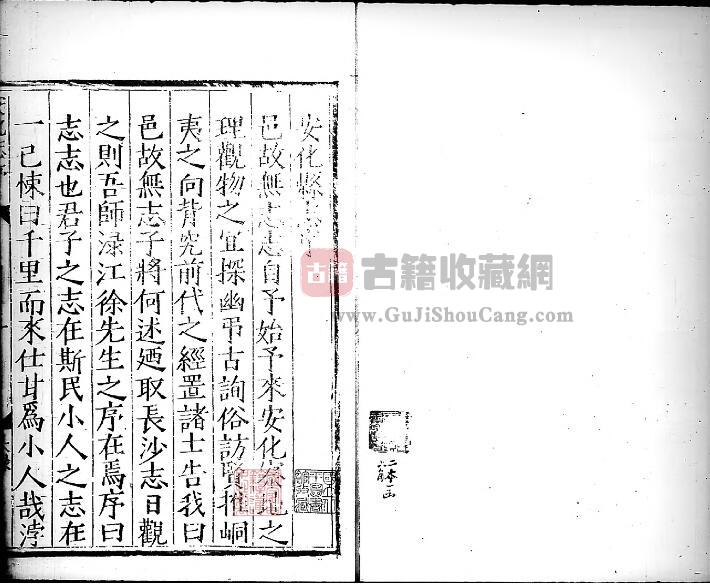 安化縣志序
邑故無志志自予始予來安化寀記之
理觀物之宜探幽弔古詢俗訪賢推峒
夷之向背究前代之經置諸士告我曰
邑故無志子將何述廼取長沙志日觀
之則吾師淥江徐先生之序在焉序曰
志志也君子之志在斯民小人之志在
一己悚曰千里而來仕甘為小人哉浡
古籍 古籍收藏網
www.GuJiShouCang.com
二本